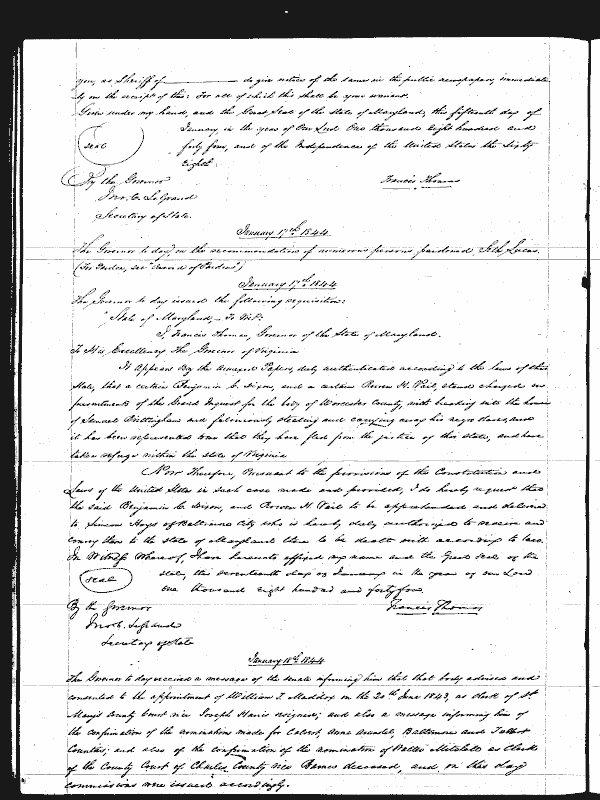 you, as Sheriff of ———— do give notice of the same in the public newspapers, immediate
ly on the receipt of this: For all of which this shall be your warrant.
Given under my hand, and the Great Seal of the State of Maryland, this fifteenth day of
January in the year of Our Lord One thousand Eight hundred and
seal
forty four, and of the Independence of the United States the Sixty
Eighth.
By the Governor
Francis Thomas
Jno. C. LeGrand
Secretary of State.
January 17th 1844
The Governor to day, on the recommendation of numerous persons pardoned Seth Lucas.
(For Pardon, see record of Pardons)
January 17th 1844
The Governor to day issued the following requisition:
"State of Maryland, To Wit:
I, Francis Thomas, Governor of the State of Maryland.
To His Excellency The Governor of Virginia
It appears By the annexed Papers, duly authenticated according to the laws of this
State, that a certain Benjamin C. Dixon, and a certain H. stands charged on
presentments of the Grand Inquest for the body of Worcester County, with breaking into the house
of Samuel Brittingham and feloniously stealing and carrying away his negro slaves, and
it has been represented to me that they have fled from the justice of this state, and have
taken refuge within the state of Virginia
Now Therefore, Pursuant to the provisions of the Constitution and
Laws of the United States in such case made and provided, I do hereby request that
the said Benjamin C. Dixon, and H. to be apprehended and delivered
to Hays of Baltimore City who is hereby duly authorized to receive and
convey them to the state of Maryland there to be dealt with according to law.
In Witness Whereof, I have hereunto affixed my name and the Great Seal of the
seal
state, this seventeenth day of January in the year of our Lord
one thousand eight hundred and forty four.
By the Governor
Francis Thomas
Jno. C. LeGrand
Secretary of State
January 18th 1844
The Governor to day received a message of the senate informing him that that body advised and
consented to the appointment of William T. Maddox on the 20th June 1843, as clerk of St
Mary's County Court vice Joseph Harris resigned; and also a message informing him of
the confirmation of the nominations made for Calvert, Anne Arundel, Baltimore and Talbot
Counties; and also of the confirmation of the nomination of Walter Mitchell as Clerk
of the County Court of Charles County vice Barnes deceased, and on this day
commissions were issued accordingly.